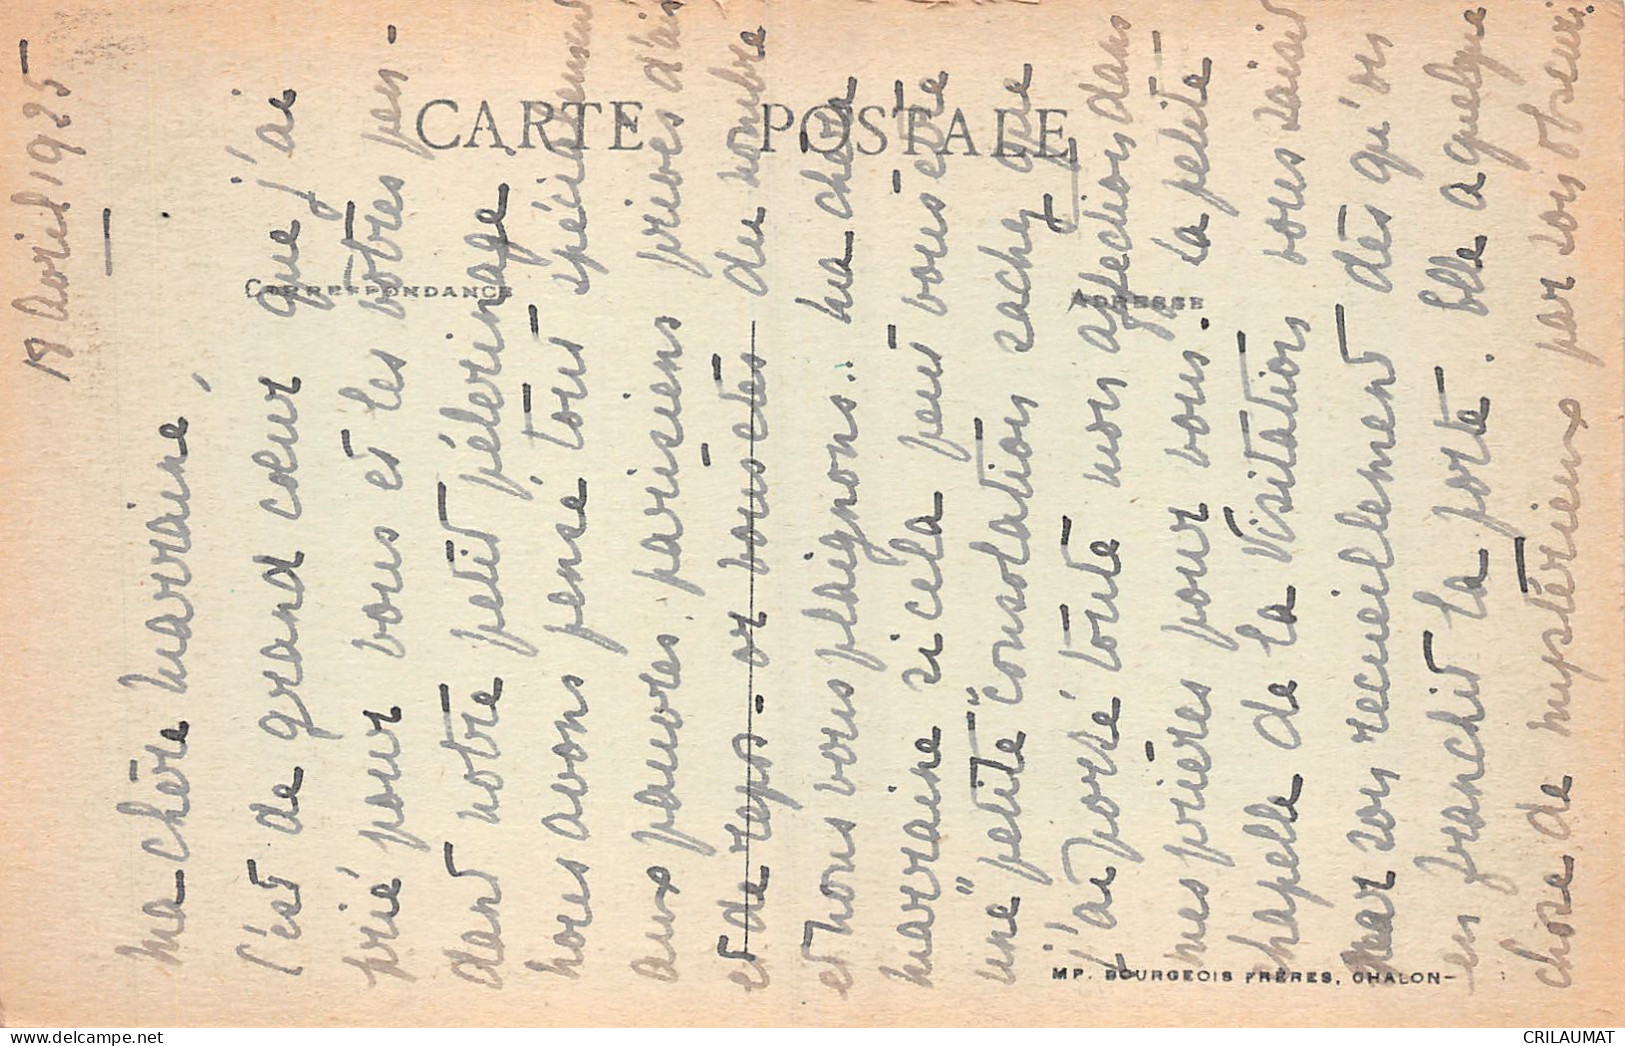 18 avril 1925
Ma chère marraine,
C'est de grand cœur que j'ai
prié pour vous et les vôtres pen-
dant notre petit pèlerinage.
nous avons pensé tout spécialement
aux pauvres parisiens privés d'air
et de repos - or vous êtes du nombre
et nous vous plaignons.. ma chère
marraine si cela peut vous être
une "petite" consolation sachez que
j'ai porté toute mon affection dans
mes prières pour vous. La petite
chapelle de la Visitation vous saisit
par son recueillement dès qu'on
en franchit la porte. Elle a quelque
chose de mystérieux par son obscuri
CARTE POSTALE
CORRESPONDANCE
ADRESSE
MP. BOURGEOIS FRÈRES, CHALON-
CRILAUMAT